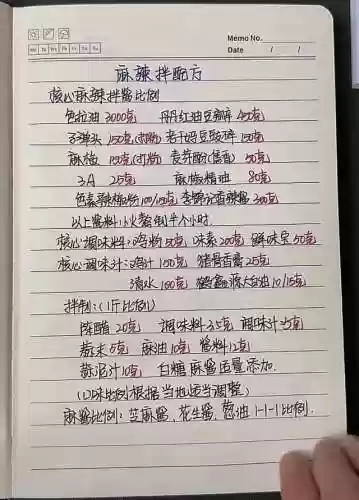 Memo No.
Mo Tu We Th Fr Sa Su
Date / /
麻辣拌配方
核心麻辣拌酱比例
色拉油 3000克 丹丹红油豆瓣 450克
子弹头 150克(打粉) 老干妈豆豉碎 150克
麻椒 150克(打粉) 麦芽酚(焦香) 50克
3A 25克 麻椒精油 80克
色素辣椒粉 100/150克 李锦记香辣酱 300克
以上酱料:小火熬制半个小时.
核心调味料:鸡粉50克 味素200克 鲜味宝50克
核心调味汁:鸡汁150克 猪骨香膏25克
清水100克 大台油10/15克
拌制:(1斤比例)
陈醋20克 调味料35克 调味汁35克
蒜末5克 麻油10克 酱料12克
蒜泥汁10克 白糖 麻酱适量添加.
(口味比例根据当地适当调整)
麻酱比例:芝麻酱,花生酱,葱油1-1-1比例.